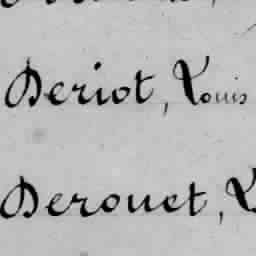 Deriot, Louis
Derouet,